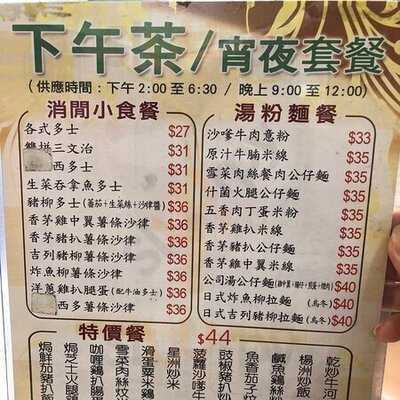 下午茶/宵夜套餐
(供應時間：下午 2:00 至 6:30 / 晚上 9:00 至 12:00)
消閒小食餐
各式多士 $27
雙拼三文治 $31
西多士 $31
生菜吞拿魚多士 $31
豬柳多士(蕃茄+生菜絲+沙律醬) $36
香茅雞中翼薯條沙律 $36
香茅豬扒薯條沙律 $36
吉列豬柳薯條沙律 $36
炸魚柳薯條沙律 $36
洋蔥雞扒腿蛋(配牛油多士) $36
西多薯條沙律 $36
湯粉麵餐
沙嗲牛肉意粉 $33
原汁牛腩米線 $35
雪菜肉絲餐肉公仔麵 $35
什菌火腿公仔麵 $35
五香肉丁蛋米粉 $35
香茅雞扒米線 $35
香茅豬扒公仔麵 $35
香茅雞中翼米線 $35
公司湯公仔麵 $40
日式炸魚柳拉麵 (烏冬) $40
日式吉列豬柳拉麵 (烏冬) $40
特價餐
$44
焗鮮茄豬扒
焗芝士火腿
咖喱雞扒腸
雪菜肉絲炆
滑蛋粟米雞
星洲炒米
菠蘿沙嗲牛
豉椒豬扒炒
魚香茄子炆
鹹魚雞絲炒
楊洲炒飯
乾炒牛河